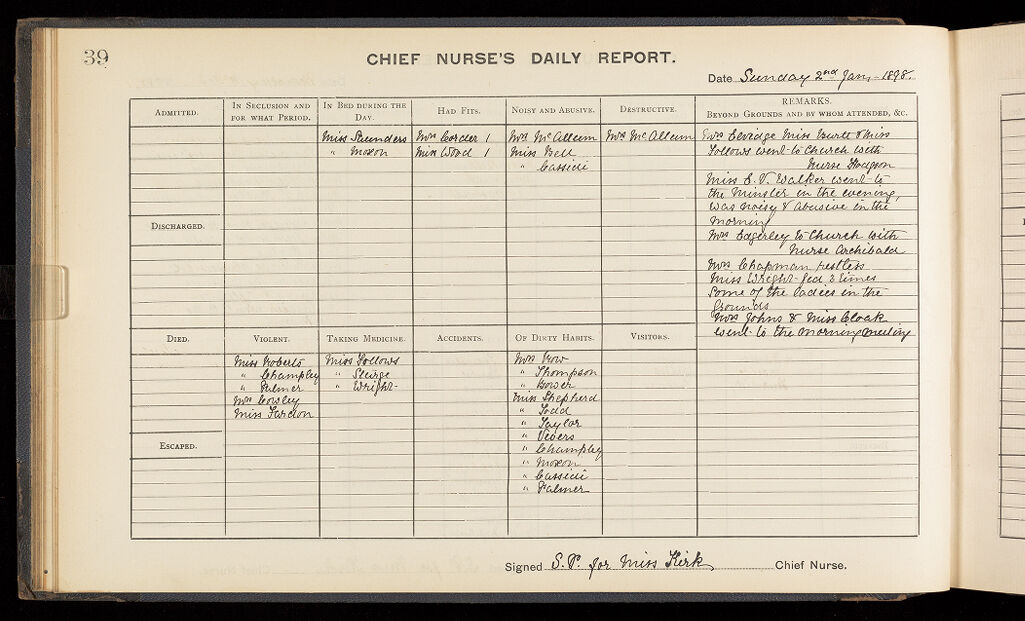 39
CHIEF NURSE'S DAILY REPORT.
Date Sunday 2nd Jany 1898.
ADMITTED.
IN SECLUSION AND FOR WHAT PERIOD.
IN BED DURING THE DAY.
HAD FITS.
NOISY AND ABUSIVE.
DESTRUCTIVE.
REMARKS.
BEYOND GROUNDS AND BY WHOM ATTENDED, &C.
Miss Saunders
" Moxon
Mrs Corder 1
Miss Wood 1
Mrs McAllum
Miss Bell
" Cassidi
Mrs McAllum
Miss Burtt & Miss
Follows went to Church with
Nurse Hodgson
Miss E. V. Walker went to
the Minster in the evening,
was noisy & abusive in the
morning
Mrs Edgerley to Church with
Nurse Archibald
Mrs Chapman restless
Miss Wright fed 3 times
Some of the ladies in the
grounds
Mrs Johns & Miss Cloak
went to the morning meeting
DISCHARGED.
DIED.
VIOLENT.
TAKING MEDICINE.
ACCIDENTS.
OF DIRTY HABITS.
VISITORS.
Miss Roberts
" Champley
" Palmer
Mrs Corsley
Miss Fardon
Miss Follows
" Sturge
" Wright
Mrs Row
" Thompson
" Bower
Miss Shepherd
" Todd
" Taylor
" Vevers
" Champley
" Moxon
" Cassidi
" Palmer
ESCAPED.
Signed S.P. for Miss Kirk Chief Nurse.